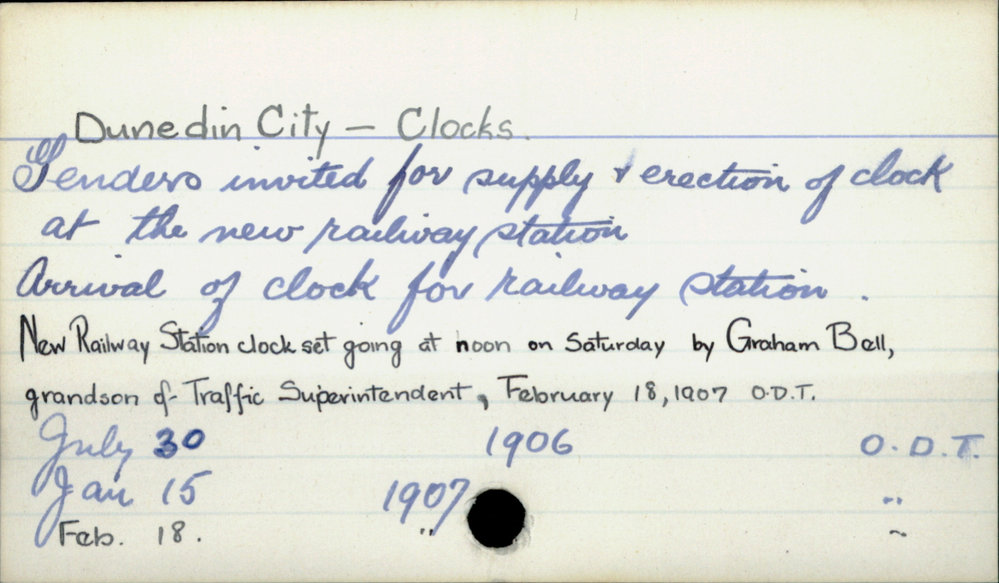 Dunedin City - Clocks.
Tenders invited for supply & erection of clock
at the new railway station
Arrival of clock for railway station .
New Railway Station clock set going at noon on Saturday by Graham Bell,
grandson of Traffic Superintendent, February 18, 1907 O.D.T.
July 30 1906 O.D.T.
Jan 15 1907 "
Feb. 18. " "